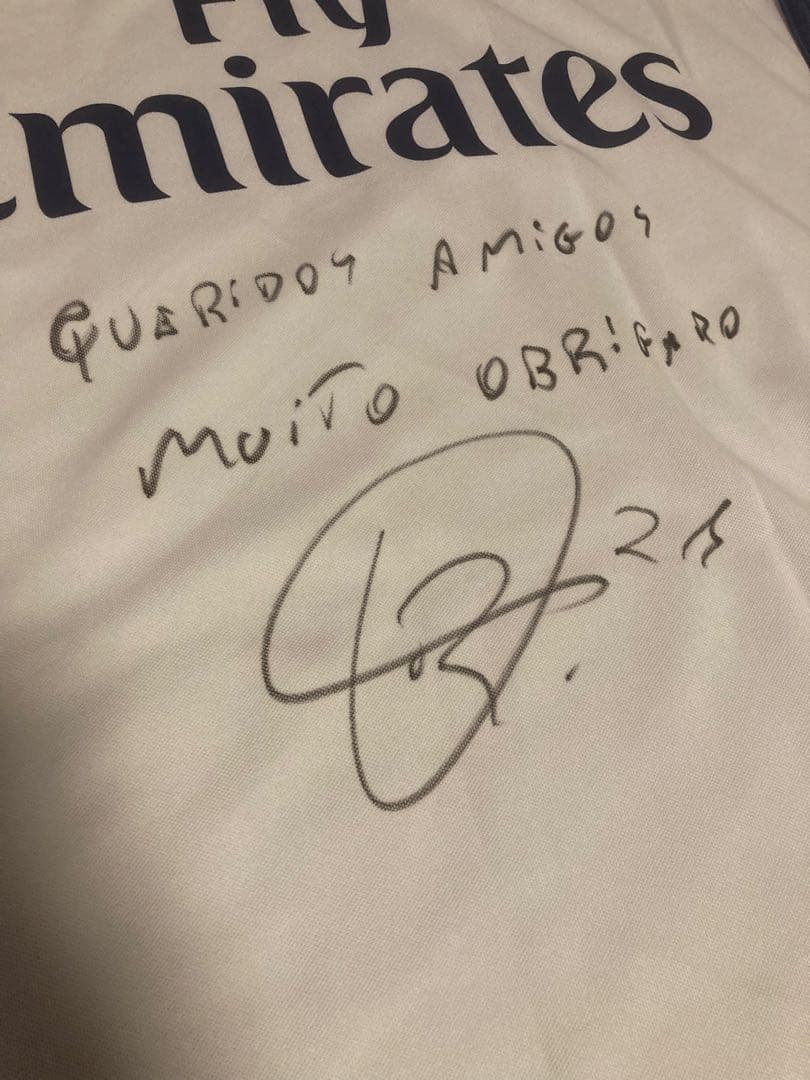 Fly
Emirates
QUERIDOS AMIGOS
MUITO OBRIGADO